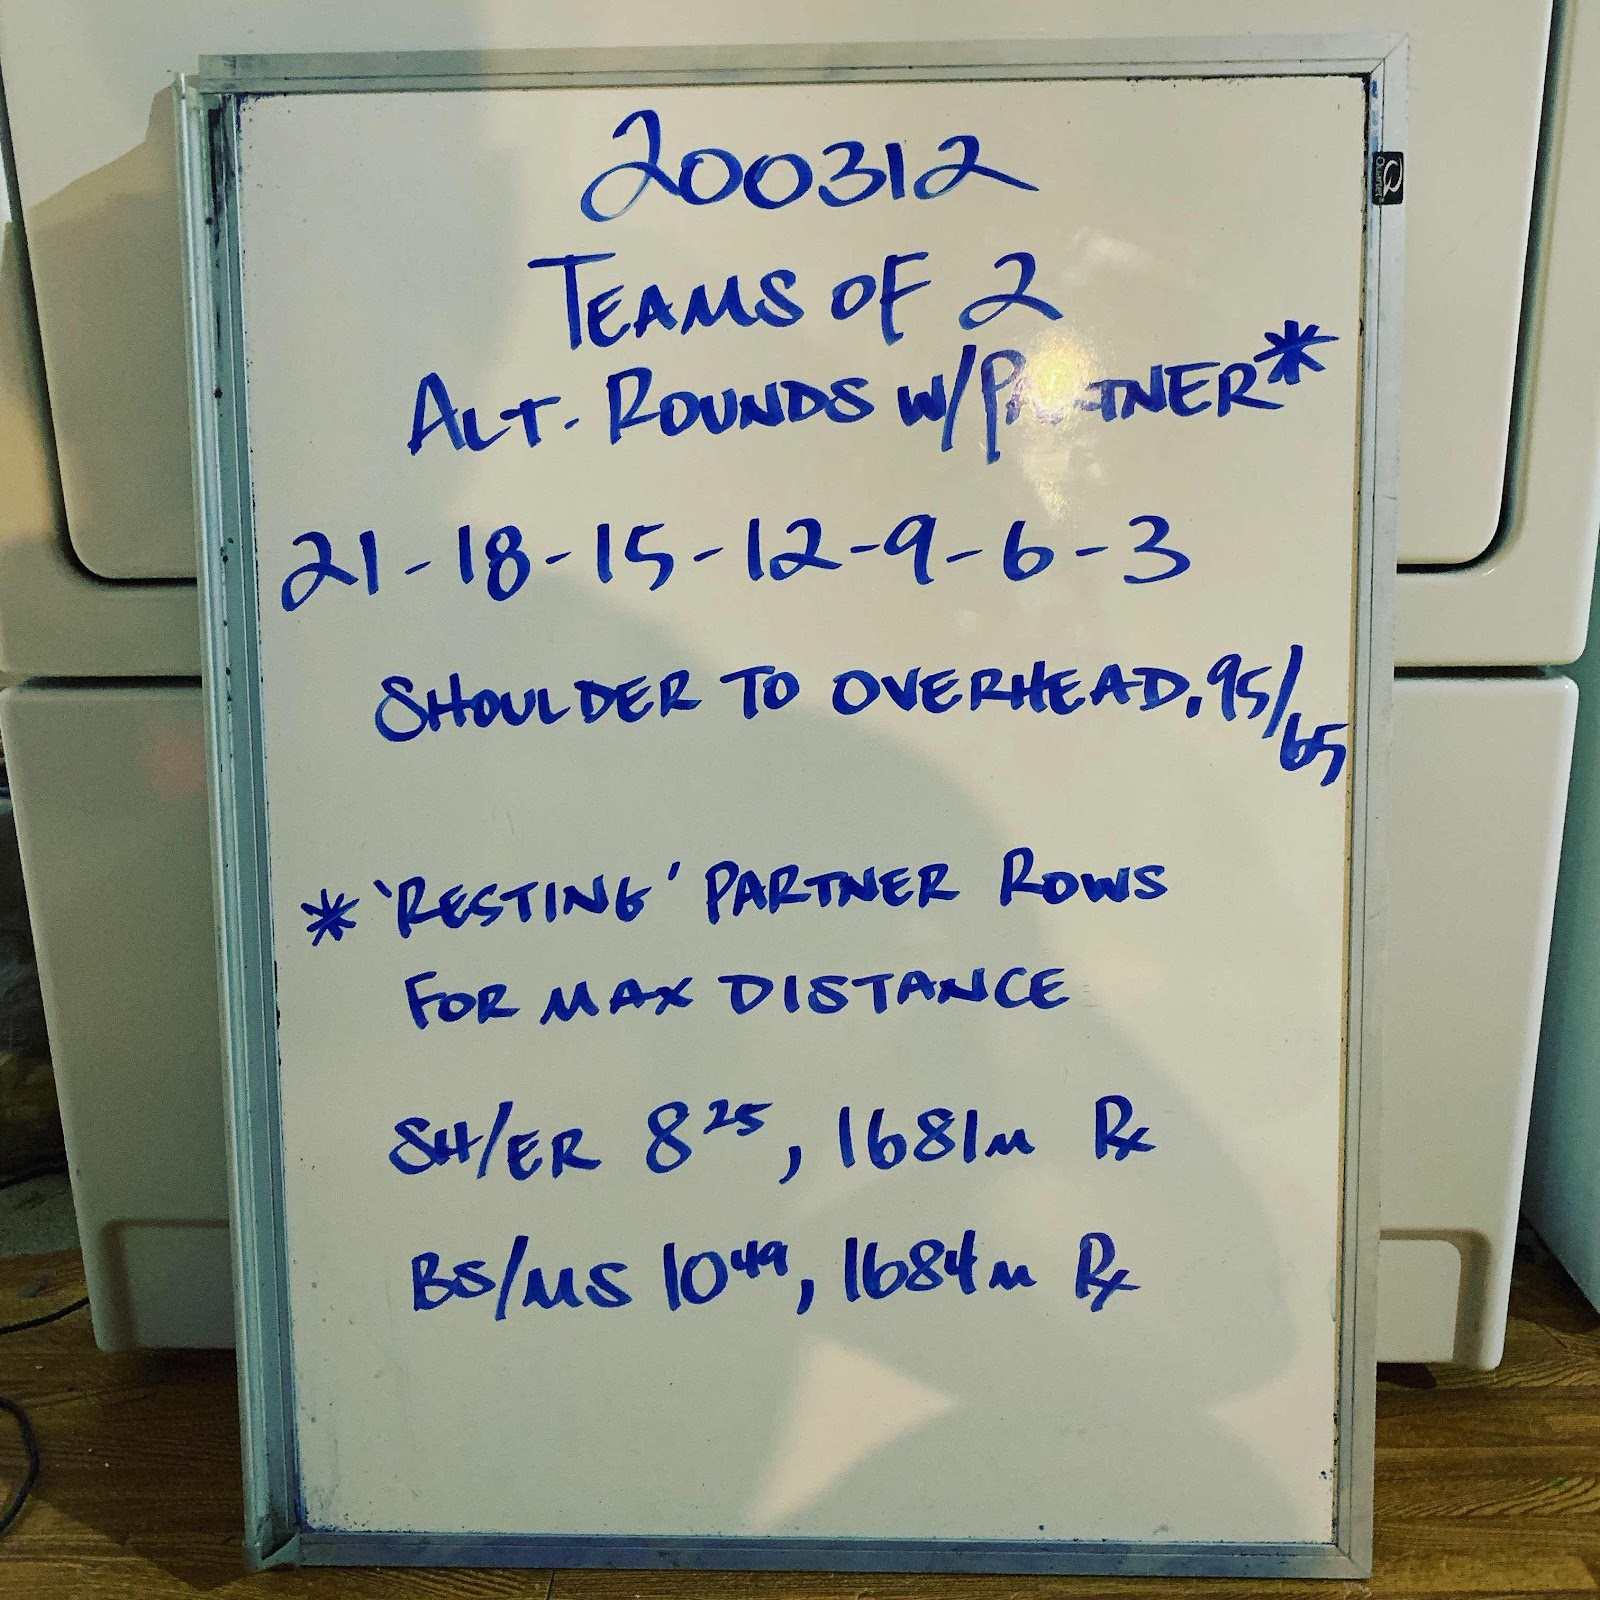 200312
TEAMS OF 2
ALT. ROUNDS W/PARTNER*
21-18-15-12-9-6-3
SHOULDER TO OVERHEAD. 95/65
* 'RESTING' PARTNER ROWS
FOR MAX DISTANCE
SH/ER 8 25, 1681m Rx
BS/MS 10 49, 1684m Rx
Quartet